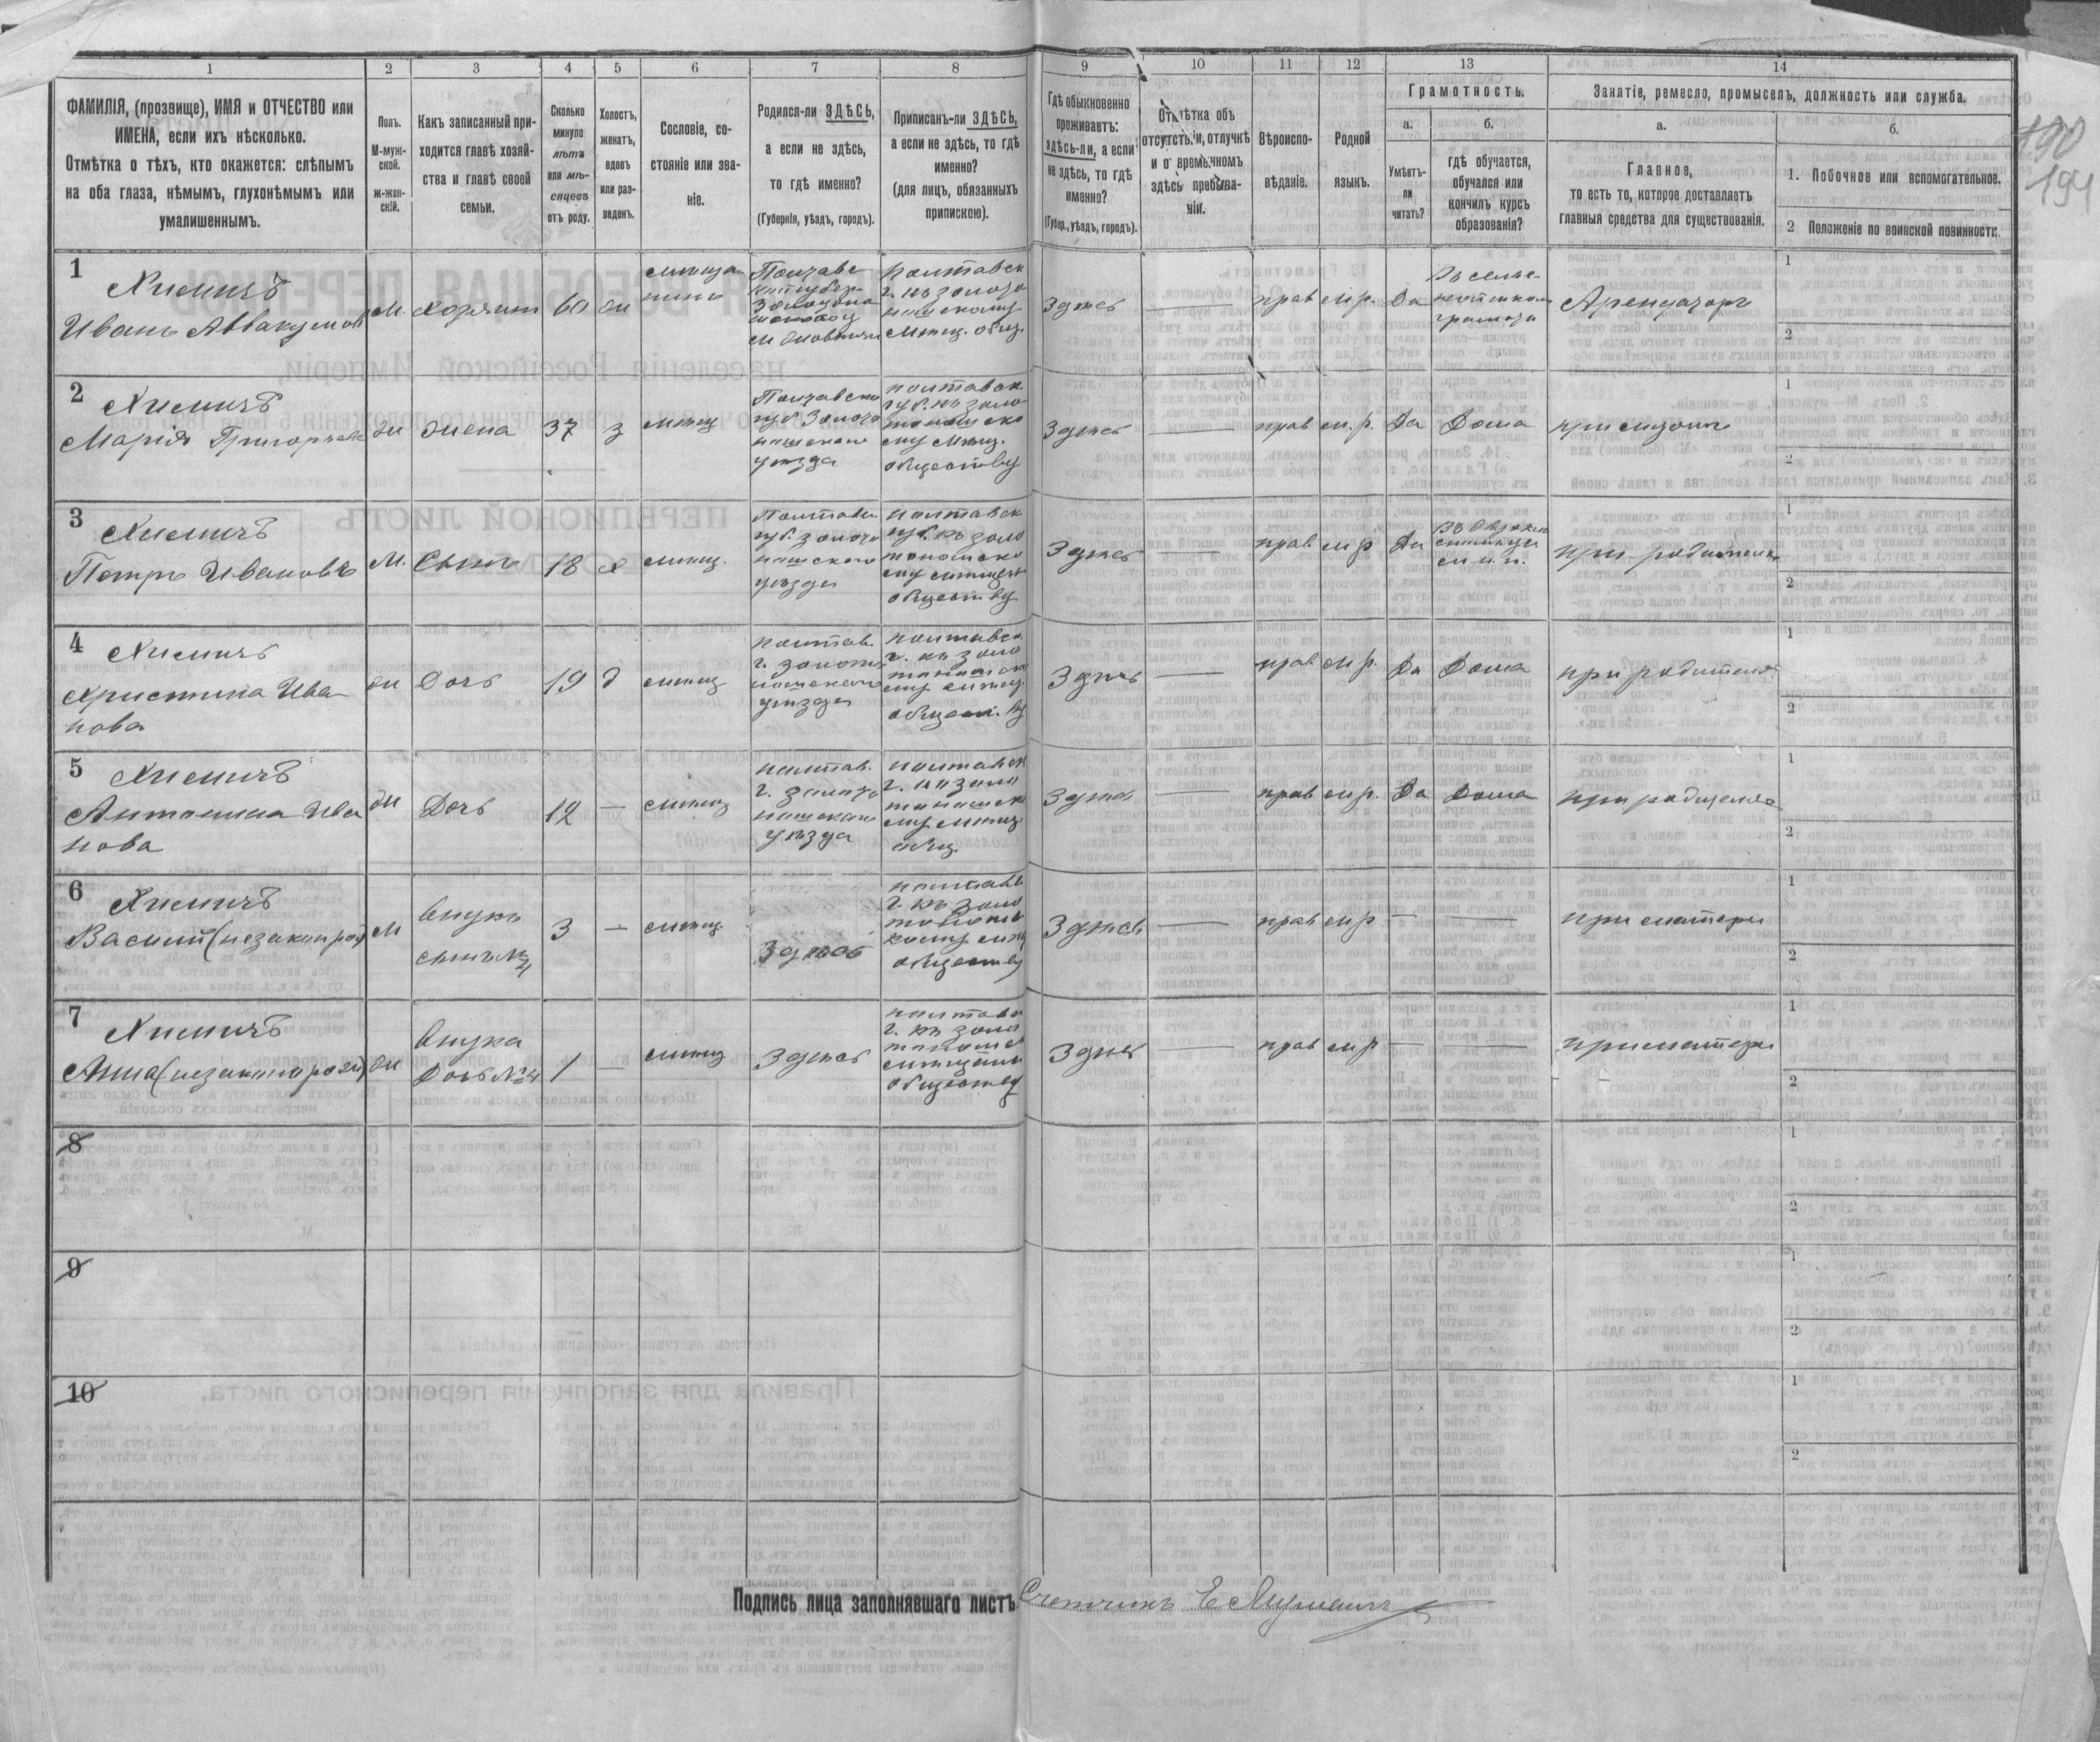 1 2 3 4 5 6 7 8 9 10 11 12 13 14
190
194
ФАМИЛІЯ, (прозвище), ИМЯ и ОТЧЕСТВО или
ИМЕНА, если ихъ нѣсколько.
Отмѣтка о тѣхъ, кто окажется: слѣпымъ
на оба глаза, нѣмымъ, глухонѣмымъ или
умалишеннымъ.
Полъ.
М-муж-
ской.
ж-жен-
скій.
Какъ записанный при-
ходится главѣ хозяй-
ства и главѣ своей
семьи.
Сколько
минуло
лѣтъ
или мѣ-
сяцевъ
отъ роду.
Холостъ,
женатъ,
вдовъ
или раз-
веденъ.
Сословіе, со-
стояніе или зва-
ніе.
Родился-ли ЗДѢСЬ,
а если не здѣсь,
то гдѣ именно?
(Губернія, уѣздъ, городъ).
Приписанъ-ли ЗДѢСЬ,
а если не здѣсь, то гдѣ
именно?
(для лицъ, обязанныхъ
припискою).
Гдѣ обыкновенно
проживаетъ:
здѣсь-ли, а если
не здѣсь, то гдѣ
именно?
(Губер., уѣздъ, городъ).
Отмѣтка объ
отсутствіи, отлучкѣ
и о временномъ
здѣсь пребыва-
ніи.
Вѣроиспо-
вѣданіе.
Родной
языкъ.
Грамотность.
а.
Умѣетъ-
ли
читать?
б.
гдѣ обучается,
обучался или
кончилъ курсъ
образованія?
Занятіе, ремесло, промыселъ, должность или служба.
а.
Главное,
то есть то, которое доставляетъ
главныя средства для существованія.
б.
1. Побочное или вспомогательное.
2 Положеніе по воинской повинности.
1
Химичъ
Иванъ Аввакумов
М. Хозяинъ 60 ж
мѣща-
нинъ
Полтавс
Золотоно
Полтавск
г. къ золото
ношскому
мѣщ. общ.
Здѣсь — прав м.р. Да
Въ сельс
Арендаторъ
1
2
2
Химичъ
Марія Григорьева
ж жена 37 з мѣщ
Полтавско
губ Золото
ношскаго
уѣзда
полтавск.
губ. къ золо-
тоношско
му мѣщ.
обществу
Здѣсь — прав м.р. Да Дома при мужѣ
1
2
3
Химичъ
Петръ Ивановъ
М. Сынъ 18 х мѣщ.
Полтавс.
губ. золото
ношскаго
уѣзда
полтавск
губ. къ золо
тоношско
му мѣщан
обществу
Здѣсь — прав м р Да
при родителя
1
2
4
Химичъ
Христина Ива-
нова
ж Дочь 19 д мѣщ
полтав.
г. золото
ношскаго
уѣзда
полтавск.
г. къ золо
тоношско
му мѣщ.
общест. ву
Здѣсь — прав м р. Да Дома при родител.
1
2
5
Химичъ
Антонина Ива
нова
ж Дочь 12 — мѣщ
полтав.
г. золото
ношскаго
уѣзда
полтавск
г. къ золо
тоношско
му мѣщ
общ.
Здѣсь — прав м р. Да Дома при родителя
1
2
6
Химичъ
Василій (незакон рож)
М
внукъ
сынъ №4
3 — мѣщ. Здѣсь
полтавс
г. къ золо
тонош
кому мѣщ
обществу
Здѣсь — прав м р — — при матери
1
2
7
Химичъ
Анна (незаконно рожд)
ж
внука
Дочь №4
1 — мѣщ Здѣсь
полтавс
г. къ золо
тонош
мѣщанск
обществу
Здѣсь — прав м р — — при матери
1
2
8
1
2
9
1
2
10
1
2
Подпись лица заполнявшаго листъ Счетчикъ Е